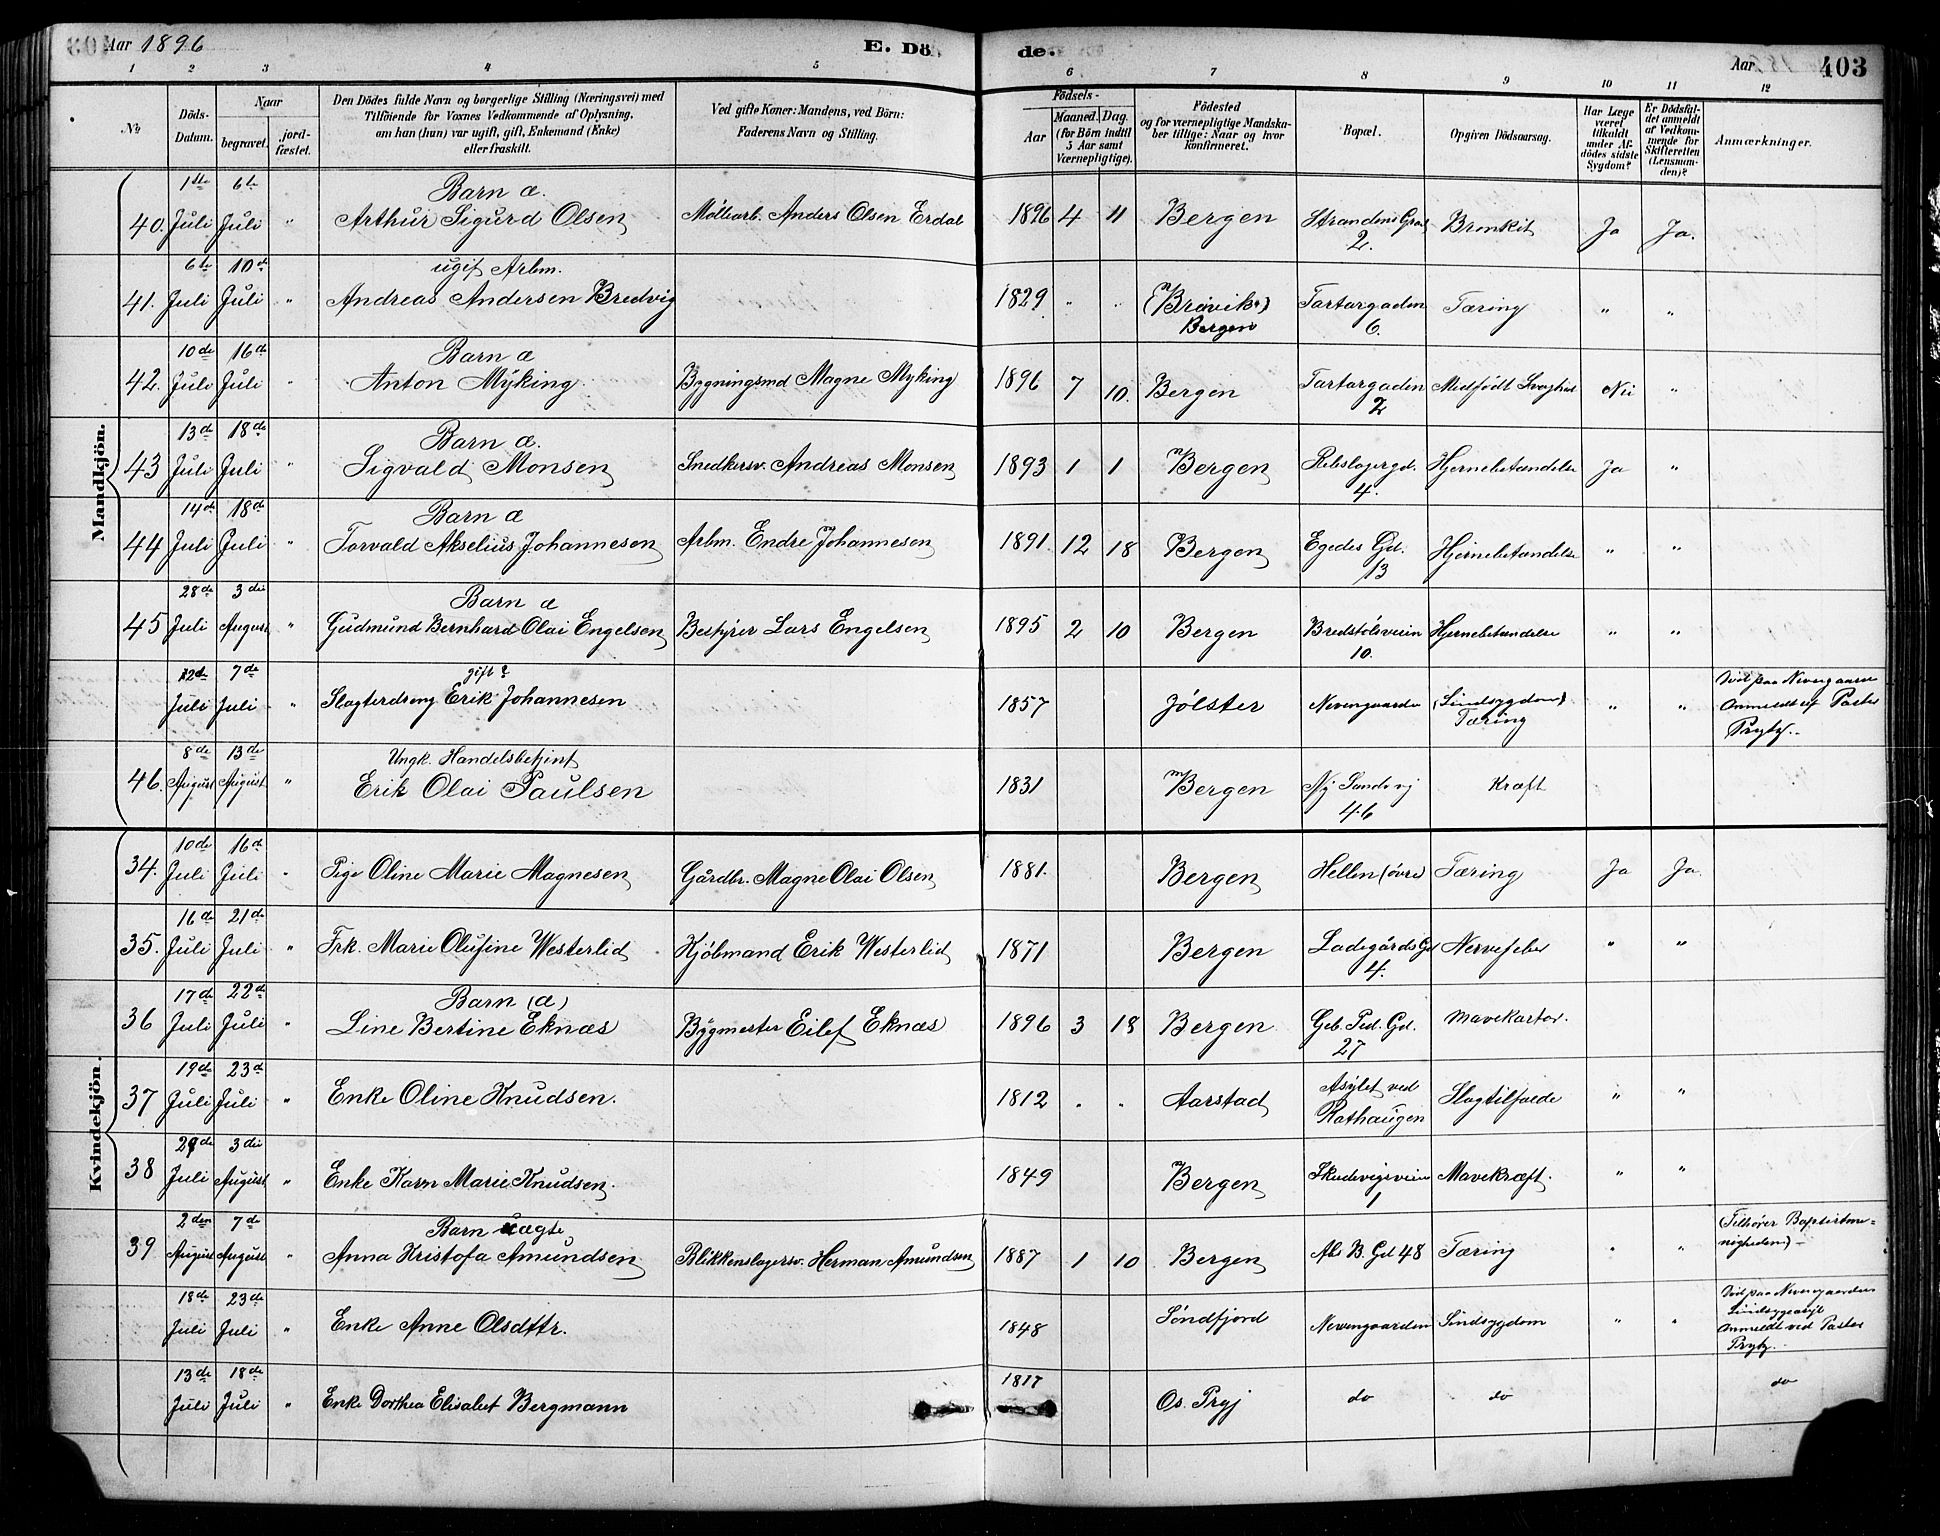 Aar 1896
E. Dö
de.
Aar
403
1 2 3 4 5 6 7 8 9 10 11 12
No
Döds-Datum.
Naar
begravet.
jord-fæstet.
Den Dödes fulde Navn og borgerlige Stilling (Næringsvei) med
Tilföiende for Voxnes Vedkommende af Oplysning,
om han (hun) var ugift, gift, Enkemand (Enke)
eller fraskilt.
Ved gifte Koner: Mandens, ved Börn:
Faderens Navn og Stilling.
Födsels-
Aar
Maaned. Dag.
(for Börn indtil
5 Aar samt
Værnepligtige).
Födested
og for værnepligtige Mandska-
ber tillige: Naar og hvor
konfirmeret.
Bopæl.
Opgiven Dödsaarsag.
Har Læge
været
tilkaldt
under Af-
dödes sidste
Sygdom?
Er Dödsfal-
det anmeldt
af Vedkom-
mende for
Skifteretten
(Lensman-
den)?
Anmærkninger.
Mandkjön.
40. 1ste Juli 6te Juli " Barn æ Arthur Sigurd Olsen Möllearb. Anders Olsen Erdal 1896 4 11 Bergen Strandens Grd 2. Bronkit Ja Ja.
41. 6te Juli 10de Juli " ugift Arbm. Andreas Andersen Bredvig 1829 " " (Brøvik) Bergen Tartargaden 6. Tæring " "
42. 10de Juli 16de Juli " Barn æ Anton Myking Bygningsmd Magne Myking 1896 7 10. Bergen Tartargaden 2 Medfödt Svaghed Nei "
43 13de Juli 18de Juli " Barn æ. Sigvald Monsen Snedkersv. Andreas Monsen 1893 1 1 Bergen Rebslagergd. 4. Hjernebetændelse Ja "
44 14de Juli 18de Juli " Barn æ Torvald Akselius Johannesen Arbm. Endre Johannesen 1891 12 18 Bergen Egedes Gd. 13 Hjernebetændelse " "
45 28de Juli 3die August " Barn æ Gudmund Bernhard Olai Engelsen Bestyrer Lars Engelsen 1895 2 10 Bergen Bredstölsveien 10. Hjernebetændelse " "
12de Juli 7de Juli " gift? Slagterdreng Erik Johannesen 1857 Jölster Nevengaarden (Sindsygdom) Tæring " " Död paa Nevengaarden Anmeldt af Pastor Prytz.
46. 8de August 13de August " Ungk. Handelsbetjent Erik Olai Paulsen 1831 Bergen Ny Sandvig 46 Kræft
Kvindekjön.
34. 10de Juli 16de Juli " Pige Oline Marie Magnesen Gårdbr. Magne Olai Olsen 1881. Bergen Hellen (övre) Tæring Ja Ja.
35. 16de Juli 21de Juli " Frk. Marie Olufine Westerlid Kjöbmand Erik Westerlid 1871 Bergen Ladegårds Gd 4. Nervefeber " "
36 17de Juli 22de Juli " Barn (æ) Line Bertine Eknæs Bygmester Eilef Eknæs 1896 3 18 Bergen Geb. Ped. Gd. 27 Mavekartar.
37 19de Juli 23de Juli " Enke Oline Knudsen. 1812 " " Aarstad Asylet ved Rothaugen Slagtilfælde " "
38 29de Juli 3die August " Enke Karn Marie Knudsen. 1849 Bergen Skudevigsveien 1 Mavekræft. " "
39 2den August 7de August " Barn uægte Anna Kristofa Amundsen Blikkenslagersv. Herman Amundsen 1887 1 10 Bergen Abs B. Gd 48 Tæring " " (Tilhörer Baptistme-nigheden)
18de Juli 23de Juli " Enke Anne Olsdttr. 1848 Söndfjord Nevengaarden Sindsygdom " " Död paa Nevengaardens Sindsygeasyl Anmeldt ved Pastor Prytz.
13de Juli 18de Juli " Enke Dorthea Elisabet Bergmann 1817 Os. Prgj do do do